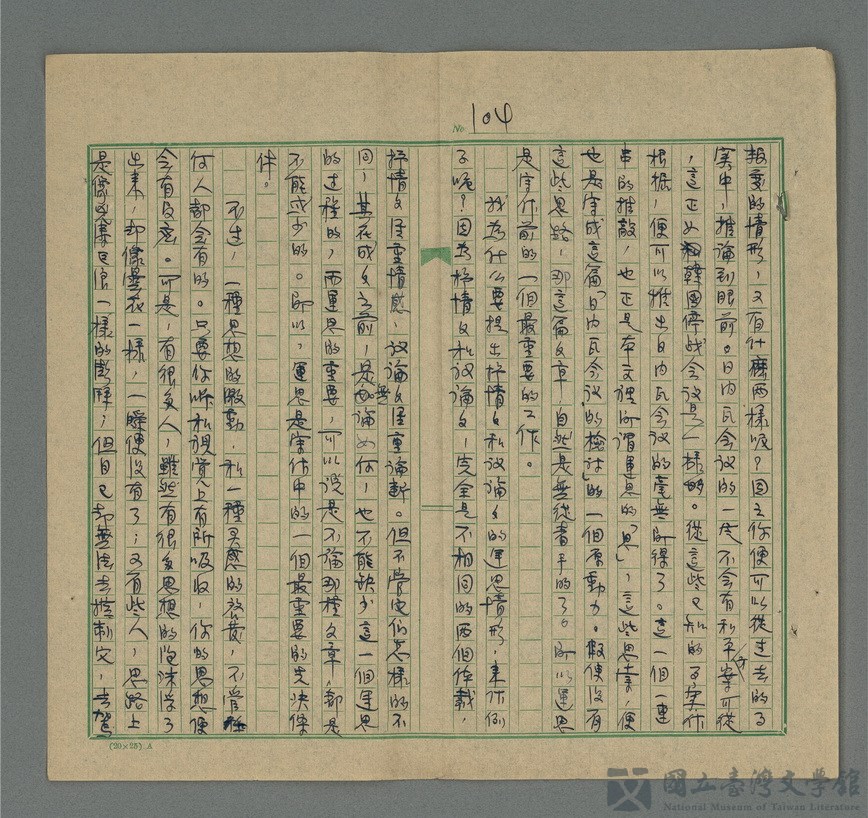 No. 104
報変的情形，又有什麼兩樣呢？因之你便可以從过去的事
実中，推論到眼前。日内瓦会议的一度不会有和平方案可從
，這正如韓國停战会议是一樣的。從這些已知的事实作
根据，便可以推出日内瓦会议的毫無所得了。這一個一連
串的推敲，也正是本文裡所谓運思的「思」，這些思索，便
也是寫成這篇「日内瓦会议的檢讨」的一個原動力。假使没有
這些思路，那這篇文章，自然是無從着手的了。所以運思
是寫作前的一個最重要的工作。
我為什么要提出抒情文和议論文的運思情形，来作例
子呢？因為抒情文和议論文，完全是不相同的两個体裁，
抒情文侧重情感，议論文侧重論断。但不管它们怎樣的不
同，其在成文之前，是無論如何，也不能缺少這一個運思
的过程的，而運思的重要，可以说是不論那種文章，都是
不能或少的。所以，運思是寫作中的一個最重要的先决條
件。
不过，一種思想的激動，和一種灵感的啟發，不管任
何人都会有的。只要你听和視覚上有所吸收，你的思想便
会有反应。可是，有很多人，雖然有很多思想的泡沫浮了
出来，却像曇花一樣，一瞬便没有了；又有些人，思路上
是像汹湧巨浪一樣的澎湃；但自己却無法去控制它，去駕
(20×25) A
國立臺灣文學館
National Museum of Taiwan Literature